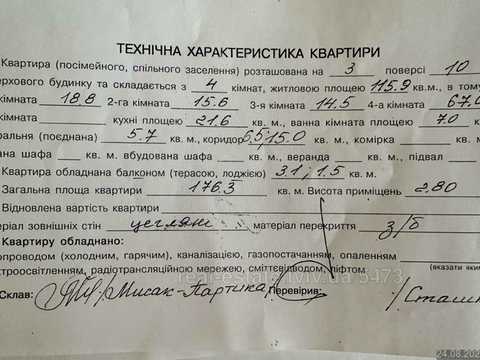 ТЕХНІЧНА ХАРАКТЕРИСТИКА КВАРТИРИ
Квартира (посімейного, спільного заселення) розташована на 3 поверсі 10
ерхового будинку та складається з 4 кімнат, житловою площею 115.9 кв.м., в тому
кімната 18.8 2-га кімната 15.6 3-я кімната 14.5 4-а кімната 67,0
кімната кухні площею 21.6 кв. м., ванна кімната площею 7.0 к
ральня (поєднана) 5.7 кв. м., коридор 6,5; 15.0 кв. м., комірка кв.
ана шафа кв. м. вбудована шафа кв. м., веранда кв. м., підвал
Квартира обладнана балконом (терасою, лоджією) 3.1; 1.5 кв. м.
Загальна площа квартири 176,3 кв. м. Висота приміщень 2.80
Відновлена вартість квартири
еріал зовнішніх стін цегляні матеріал перекриття з/б
Квартиру обладнано:
опроводом (холодним, гарячим), каналізацією, газопостачанням, опаленням
ектроосвітленням, радіотрансляційною мережею, сміттєвідводом, ліфтом. (вказати яким
real-estate.lviv.ua 5473
Склав: Мисак-Партика Перевірив: /Сташк
24.08.202